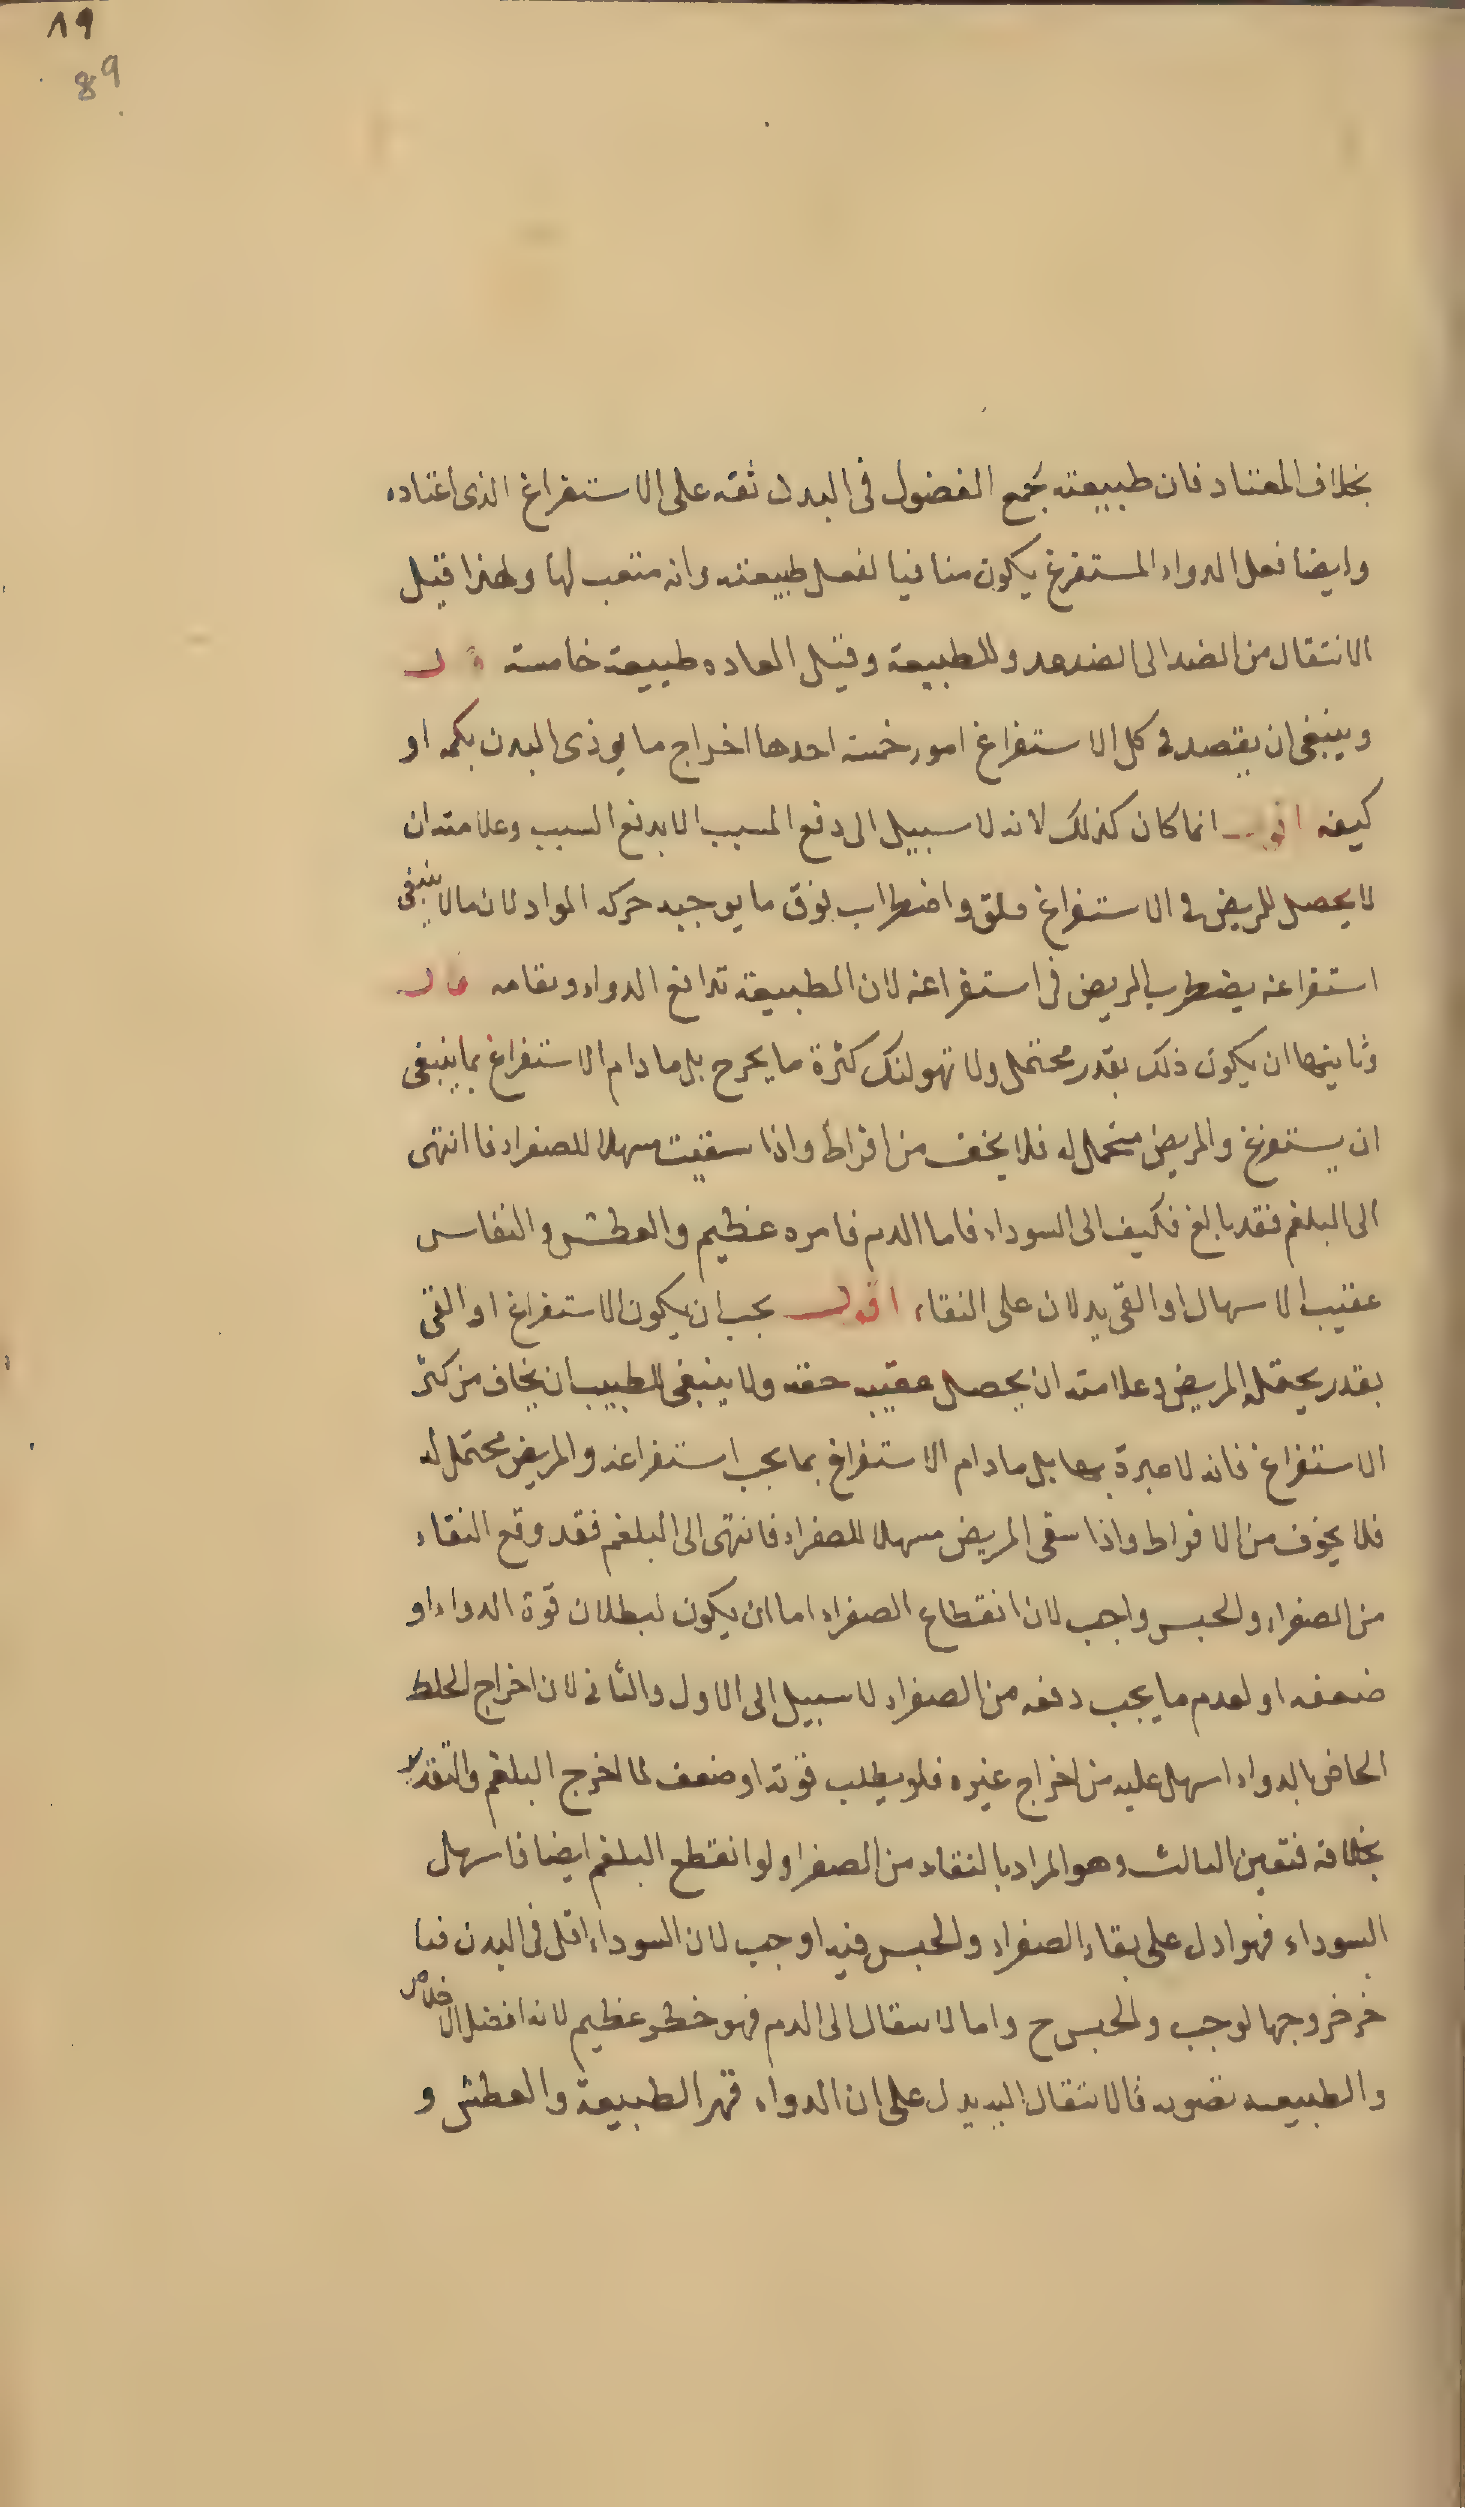 ٨٩
89
بخلاف المعتاد فان طبيعته تجمع الفضول فى البدن ثقه على الاستفراغ الذى اعتاده
وايضا فعل الدواء المستفرغ يكون منافيا لفعل طبيعته وانه متعب لها ولهذا قيل
الانتقال من الضد الى الضد عدو للطبيعة وقيل العاده طبيعة خامسة قال
وينبغى ان يقصد فى كل الاستفراغ امور خمسة احدها اخراج ما يوذى البدن بكمه او
كيفه اقول انما كان كذلك لانه لا سبيل الى دفع المسبب الا بدفع السبب وعلامته ان
لا يحصل للمريض فى الاستفراغ قلق واضطراب فوق ما يوجبه حركه المواد لان مالا ينبغى
استفراغه يضطرب المريض فى استفراغه لان الطبيعة تدافع الدواء وتقامه قال
وثانيتها ان يكون ذلك بقدر محتمل ولا تهولنك كثرة ما يخرج بل ما دام الاستفراغ بما ينبغى
ان يستفرغ والمريض متحمل له فلا يخف من افراط واذا سقيت مسهلا للصفراء فانتهى
الى البلغم فقد بالغ فكيف الى السوداء فاما الدم فامره عظيم والعطش والنعاس
عقيب الاسهال او القى يدلان على النقاء اقول يجب ان يكون الاستفراغ او القى
بقدر يحتمله المريض وعلامته ان يحصل عقيبه خفه ولا ينبغى للطبيب ان يخاف من كثر
الاستفراغ فانه لا عبرة بها بل ما دام الاستفراغ بما يجب استفراغه والمريض محتمل له
فلا يخوف من الافراط واذا سقى المريض مسهلا للصفراء فانتهى الى البلغم فقد وقع النقاء
من الصفراء والحبس واجب لان انقطاع الصفراء اما ان يكون لبطلان قوة الدواء او
ضعفه او لعدم ما يجب دفعه من الصفراء لا سبيل الى الاول والثانى لان اخراج الخلط
الخاص بالدواء اسهل عليه من اخراج غيره فلو بطلب قوته او ضعف لما اخرج البلغم والتقدير
بخلافه فتعين الثالث وهو المراد بالنقاء من الصفرا ولو انقطع البلغم ايضا فاسهل
السوداء فهو ادل على بقاء الصفراء والحبس فيه اوجب لان السوداء اقل فى البدن فتا
خر خروجها لوجب والحبس ح واما الانتقال الى الدم فهو خطر عظيم لانه افضل الاخلاط
والطبيعه تصونه فالانتقال اليه يدل على ان الدواء قهر الطبيعة والعطش و